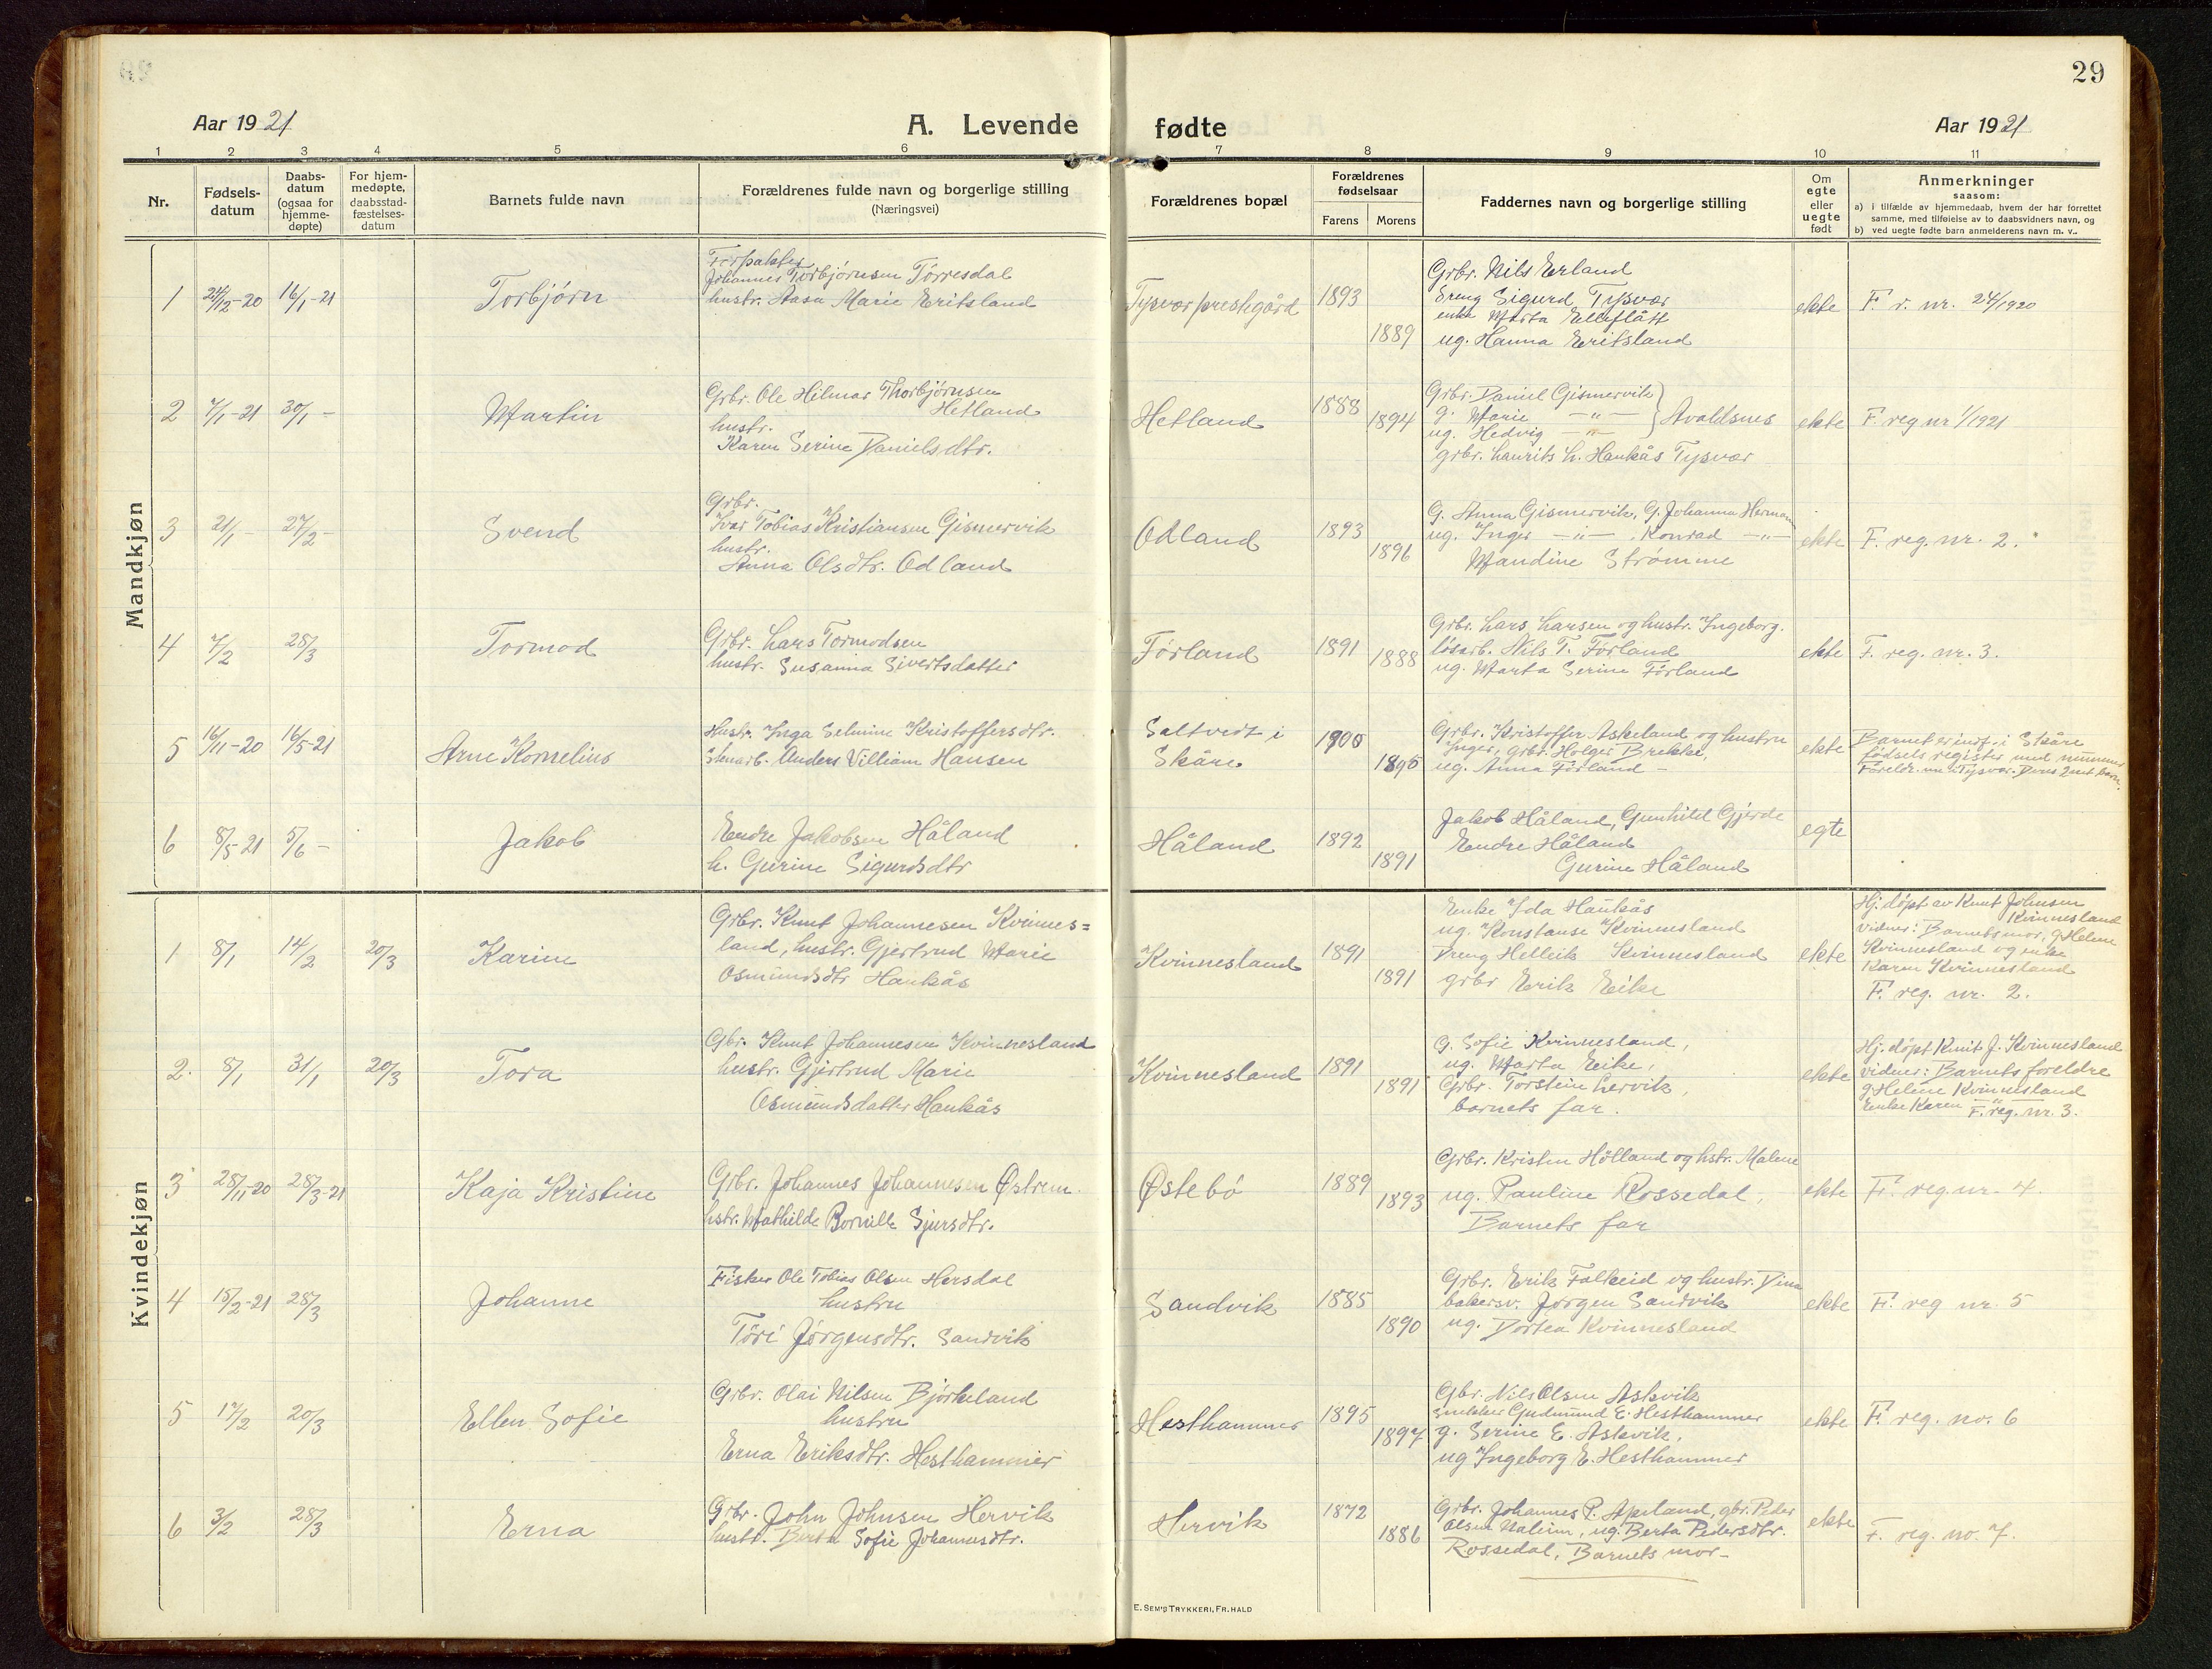 29
Aar 1921
A. Levende fødte
Aar 1921
1 2 3 4 5 6 7 8 9 10 11
Nr.
Fødsels-
datum
Daabs-
datum
(ogsaa for
hjemme-
døpte)
For hjem-
medøpte,
daabsstad-
fæstelses-
datum
Barnets fulde navn
Forældrenes fulde navn og borgerlige stilling
(Næringsvei)
Forældrenes bopæl
Forældrenes
fødselsaar
Farens Morens
Faddernes navn og borgerlige stilling
Om
egte
eller
uegte
født
Anmerkninger
saasom:
a) i tilfælde av hjemmedaab, hvem der har forrettet
samme, med tilføielse av to daabsvidners navn, og
b) ved uegte fødte barn anmelderens navn m. v..
Mandkjøn
1 24/12-20 16/1-21
Torbjørn
Forpakter
Johannes Torbjørnsen Tørresdal
hustr. Aasa Marie Eritsland
Tysvær prestegård
1893
1889
Grbr. Nils Erland
Dreng Sigurd Tysvær
enke Marta Elleflått
ug. Hanna Eritsland
ekte
F. r. nr. 24/1920
2 7/1-21 30/1 -
Martin
Grbr. Ole Hilmar Thorbjørnsen
Hetland
hustr.
Karen Serine Danielsdtr.
Hetland
1888
1894
Grbr. Daniel Gismervik
g. Marie -"-
ug. Hedvig -"-
Avaldsnes
grbr. Laurits L. Haukås Tysvær
ekte
F. reg nr 1/1921
3 21/1 - 27/2 -
Svend
Grbr.
Ivar Tobias Kristiansen Gismervik
hustr.
Anna Olsdtr. Odland
Odland
1893
1896
G. Anna Gismervik, G. Johanna Herman
ug. Inger -"- , Konrad -"-
Mandine Strømme
ekte
F. reg. nr. 2.
4 7/2 28/3
Tormod
Grbr. Lars Tormodsen
hustr. Susanna Sivertsdatter
Førland
1891
1888
Grbr. Lars Larsen og hustr. Ingeborg.
løsarb. Nils T. Førland
ug. Marta Serine Førland
ekte
F. reg. nr. 3.
5 16/11-20 16/5-21
Arne Kornelius
Hustr. Inga Selmine Kristoffersdtr.
Stenarb. Anders Villiam Hansen
Saltvedt i
Skåre
1900
1896
Grbr. Kristoffer Askeland og hustru
Inger, grbr. Holger Brekke,
ug. Anna Førland -
ekte
Barnet er indf. i Skåre
fødsels register med nummer
6 8/5-21 5/6 -
Jakob
Endre Jakobsen Håland
h. Gurine Sigurdsdtr
Håland
1892
1891
Jakob Håland, Gunhild Gjerde
Endre Håland
Gurine Håland
egte
Kvindekjøn
1 8/1 14/2 20/3
Karine
Grbr. Knut Johannesen Kvinnes=
land, hustr. Gjertrud Marie
Osmundsdtr Haukås
Kvinnesland
1891
1891
Enke Ida Haukås
ug. Konstanse Kvinnesland
Dreng Helleik Kvinnesland
grbr Erik Eike
ekte
Hj. døpt av Knut Johnsen
Kvinnesland
vidner: Barnets mor, g Helene
Kvinnesland og enke
Karen Kvinnesland
F. reg. nr. 2.
2. 8/1 31/1 20/3
Tora
Gbr. Knut Johannesen Kvinnesland
hustr. Gjertrud Marie
Osmundsdatter Haukås
Kvinnesland
1891
1891
G. Sofie Kvinnesland,
ug. Marta Eike,
Grbr. Torstein Lervik,
barnets far.
ekte
Hj. døpt Knut J. Kvinnesland
vidner: Barnets foreldre
g. Helene Kvinnesland
Enke Karen -"-
F. reg. nr. 3.
3 28/11-20 28/3-21
Kaja Kristine
Grbr. Johannes Johannesen Østrem.
hstr. Mathilde Bornille Sjursdtr.
Østebö
1889
1893
Grbr. Kristen Hölland og hstr. Malene
ug. Pauline Rossedal,
Barnets far
ekte
F. reg. nr. 4.
4 15/2-21 28/3
Johanne
Fisker Ole Tobias Olsen Hersdal
hustru
Töri Jørgensdtr. Sandvik
Sandvik
1885
1890
Grbr. Erik Falkeid og hustr. Dina
bakersv. Jørgen Sandvik
ug. Dortea Kvinnesland
ekte
F. reg nr. 5
5 17/2 20/3
Ellen Sofie
Grbr. Olai Nilsen Bjørkeland
hustru
Erna Eriksdtr. Hesthammer
Hesthammer
1895
1897
Gbr. Nils Olsen Askvik
snekker Gudmund E. Hesthammer
g. Serine E. Askvik,
ug Ingeborg E. Hesthammer
ekte
F. reg. no. 6
6 3/2 28/3
Erna
Grbr. John Johnsen Hervik
hustr. Berta Sofie Johannesdtr.
Hervik
1872
1886
Grbr. Johannes P. Apeland, gbr. Peder
Olsen Naleim, ug. Berta Pedersdtr.
Rossedal, Barnets mor-
ekte
F. reg. no. 7.
E. SEM'S TRYKKERI, FR. HALD